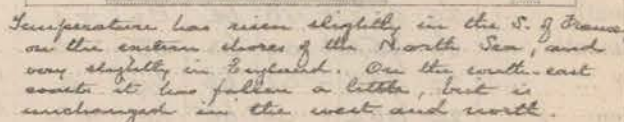 Temperature has risen slightly in the S. of France,
on the eastern shores of the North Sea, and
very slightly in England. On the south-east
coasts it has fallen a little, but is
unchanged in the west and north.